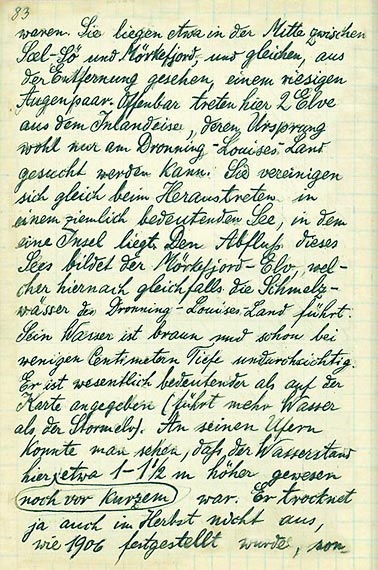 83
waren. Sie liegen etwa in der Mitte zwischen
Sæl-Sö und Mörkefjord, und gleichen, aus
der Entfernung gesehen, einem riesigen
Augenpaar. Offenbar treten hier 2 Elve
aus dem Inlandeise, deren Ursprung
wohl nur am Dronning-Louises-Land
gesucht werden kann. Sie vereinigen
sich gleich beim Heraustreten in
einem ziemlich bedeutenden See, in dem
eine Insel liegt. Den Abfluß dieses
Sees bildet der Mörkefjord-Elv, wel-
cher hiernach gleichfalls die Schmelz-
wässer des Dronning-Louises Land führt.
Sein Wasser ist braun und schon bei
wenigen Centimetern Tiefe undurchsichtig.
Er ist wesentlich bedeutender als auf der
Karte angegeben (führt mehr Wasser
als der Stormelv). An seinen Ufern
konnte man sehen, daß der Wasserstand
hier etwa 1–1½ m höher gewesen
noch vor kurzem war. Er trocknet
ja auch im Herbst nicht aus,
wie 1906 festgestellt wurde, son-